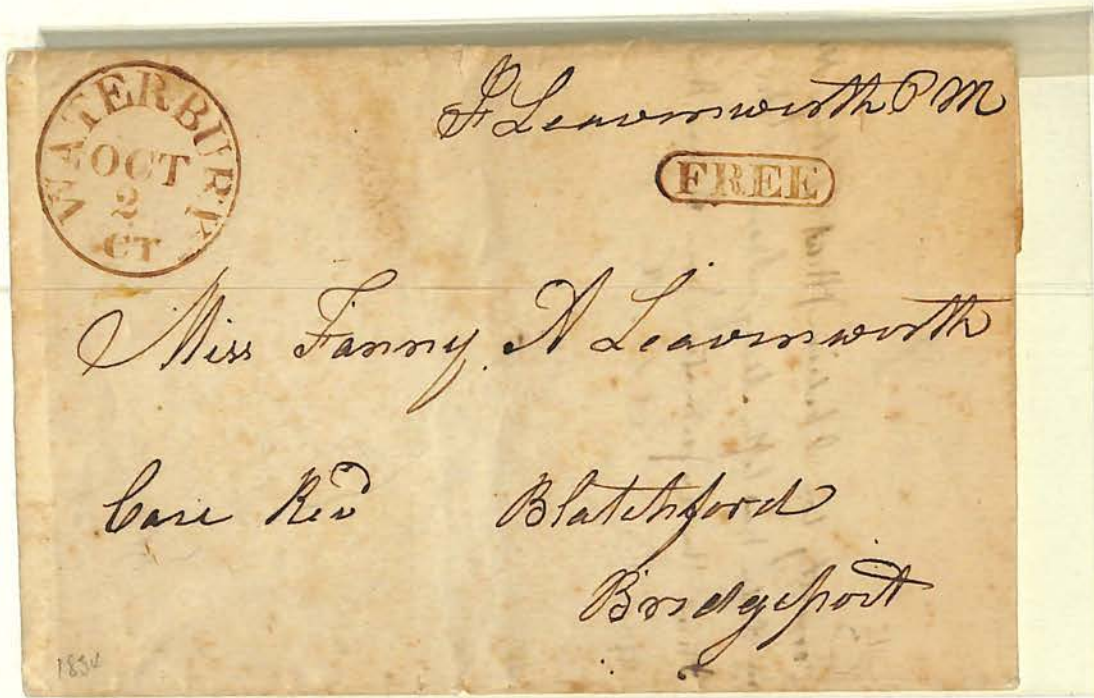 WATERBURY
OCT
2
CT
F Leavenworth P M
FREE
Miss Fanny A Leavenworth
Care Revd Blatchford
Bridgeport